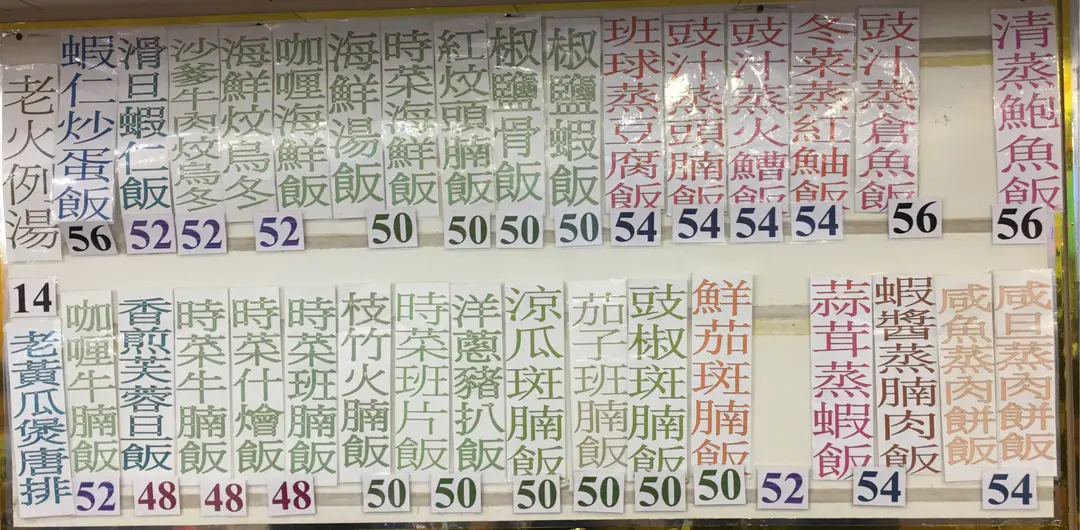 老火例湯
14
蝦仁炒蛋飯
56
滑旦蝦仁飯
52
沙爹牛肉炆烏冬
52
海鮮炆烏冬
咖喱海鮮飯
52
海鮮湯飯
時菜海鮮飯
50
紅炆頭腩飯
50
椒鹽骨飯
50
椒鹽蝦飯
50
班球蒸豆腐飯
54
豉汁蒸頭腩飯
54
豉汁蒸火鰽飯
54
冬菜蒸紅鮋飯
54
豉汁蒸倉魚飯
56
清蒸鮑魚飯
56
老黃瓜煲唐排
咖喱牛腩飯
52
香煎芙蓉旦飯
48
時菜牛腩飯
48
時菜什燴飯
48
時菜班腩飯
枝竹火腩飯
50
時菜班片飯
50
洋蔥豬扒飯
涼瓜斑腩飯
50
茄子班腩飯
50
豉椒斑腩飯
50
鮮茄斑腩飯
50
52
蒜茸蒸蝦飯
54
蝦醬蒸腩肉飯
咸魚蒸肉餅飯
咸旦蒸肉餅飯
54